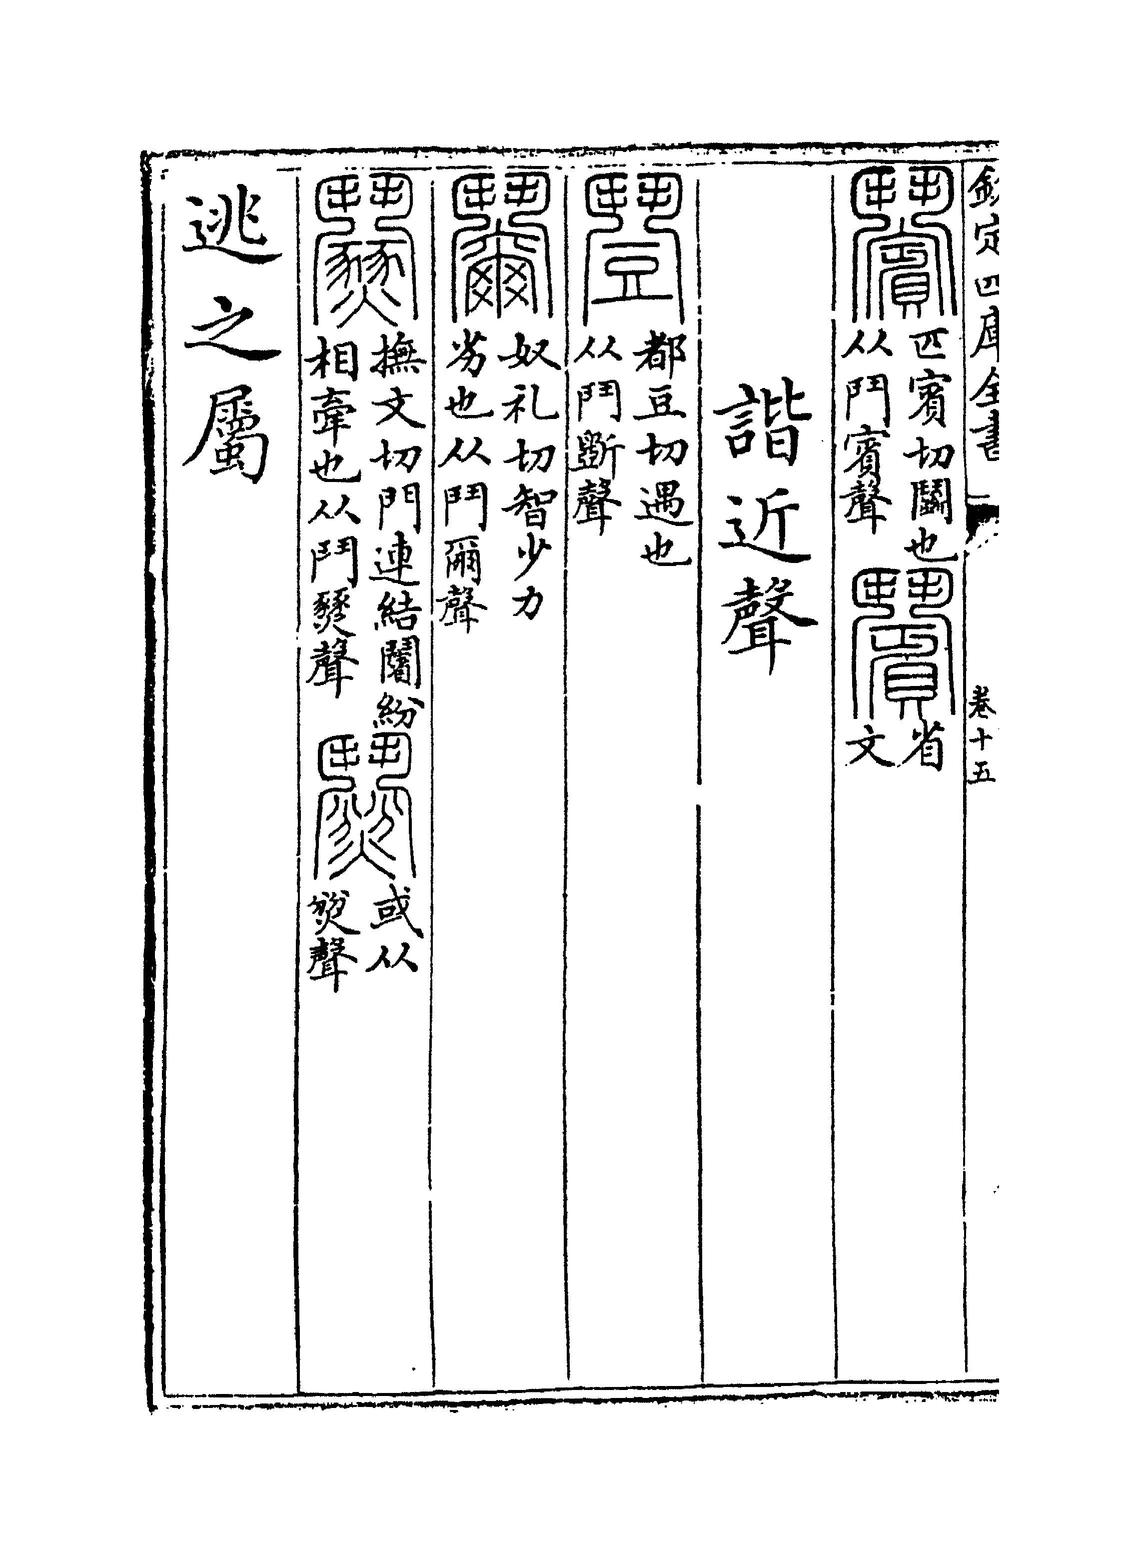 欽定四庫全書 卷十五
匹賓切鬭也
从鬥賓聲
省
文
諧近聲
都豆切遇也
从鬥斲聲
奴礼切智少力
劣也从鬥爾聲
撫文切門連結紛
相牽也从鬥燹聲
或从
聲
逃之屬